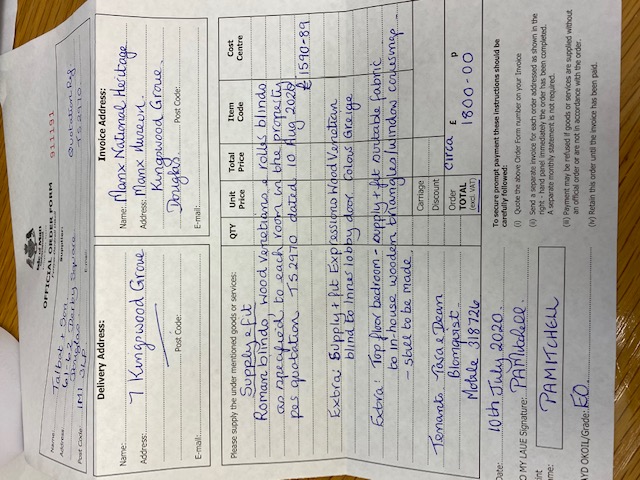 OFFICIAL ORDER FORM
911191
Supplier:
Quotation Ref
TS2970
Name: Talbot + Son
Address: 61-62 Derby Square
Douglas
Post Code: IM1 3LP
Delivery Address:
Name:
Address: 7 Kingswood Grove
Post Code:
E-mail:
Invoice Address:
Name: Manx National Heritage
Address: Manx Museum
Kingswood Grove
Douglas
Post Code:
E-mail:
Please supply the under mentioned goods or services:
QTY
Unit Price
Total Price
Item Code
Cost Centre
Supply & fit
Roman blinds Wood Venetians & roller blinds
as specified to each room in the property
per quotation TS2970 dated 10 Aug 2020
£1590-89
Extra: Supply & fit Expressions Wood Venetian
blind to inner lobby door colour Greige
Extra: Top floor bedroom - supply & fit suitable fabric
to in-house wooden triangles/window coverings -
- still to be made.
Tenants Tara & Dean
Blomquist
Mobile 318726
Carriage
Discount
Order TOTAL (excl. VAT)
£ p
circa 1800-00
Date: 10th July 2020
Signature: PAMitchell
PAMITCHELL
/Grade: EO.
To secure prompt payment these instructions should be
carefully followed:
(i) Quote the above Order Form number on your Invoice
(ii) Send a separate Invoice for each order addressed as shown in the
right - hand panel immediately the order has been completed.
A separate monthly statement is not required.
(iii) Payment may be refused if goods or services are supplied without
an official order or are not in accordance with the order.
(iv) Retain this order until the invoice has been paid.